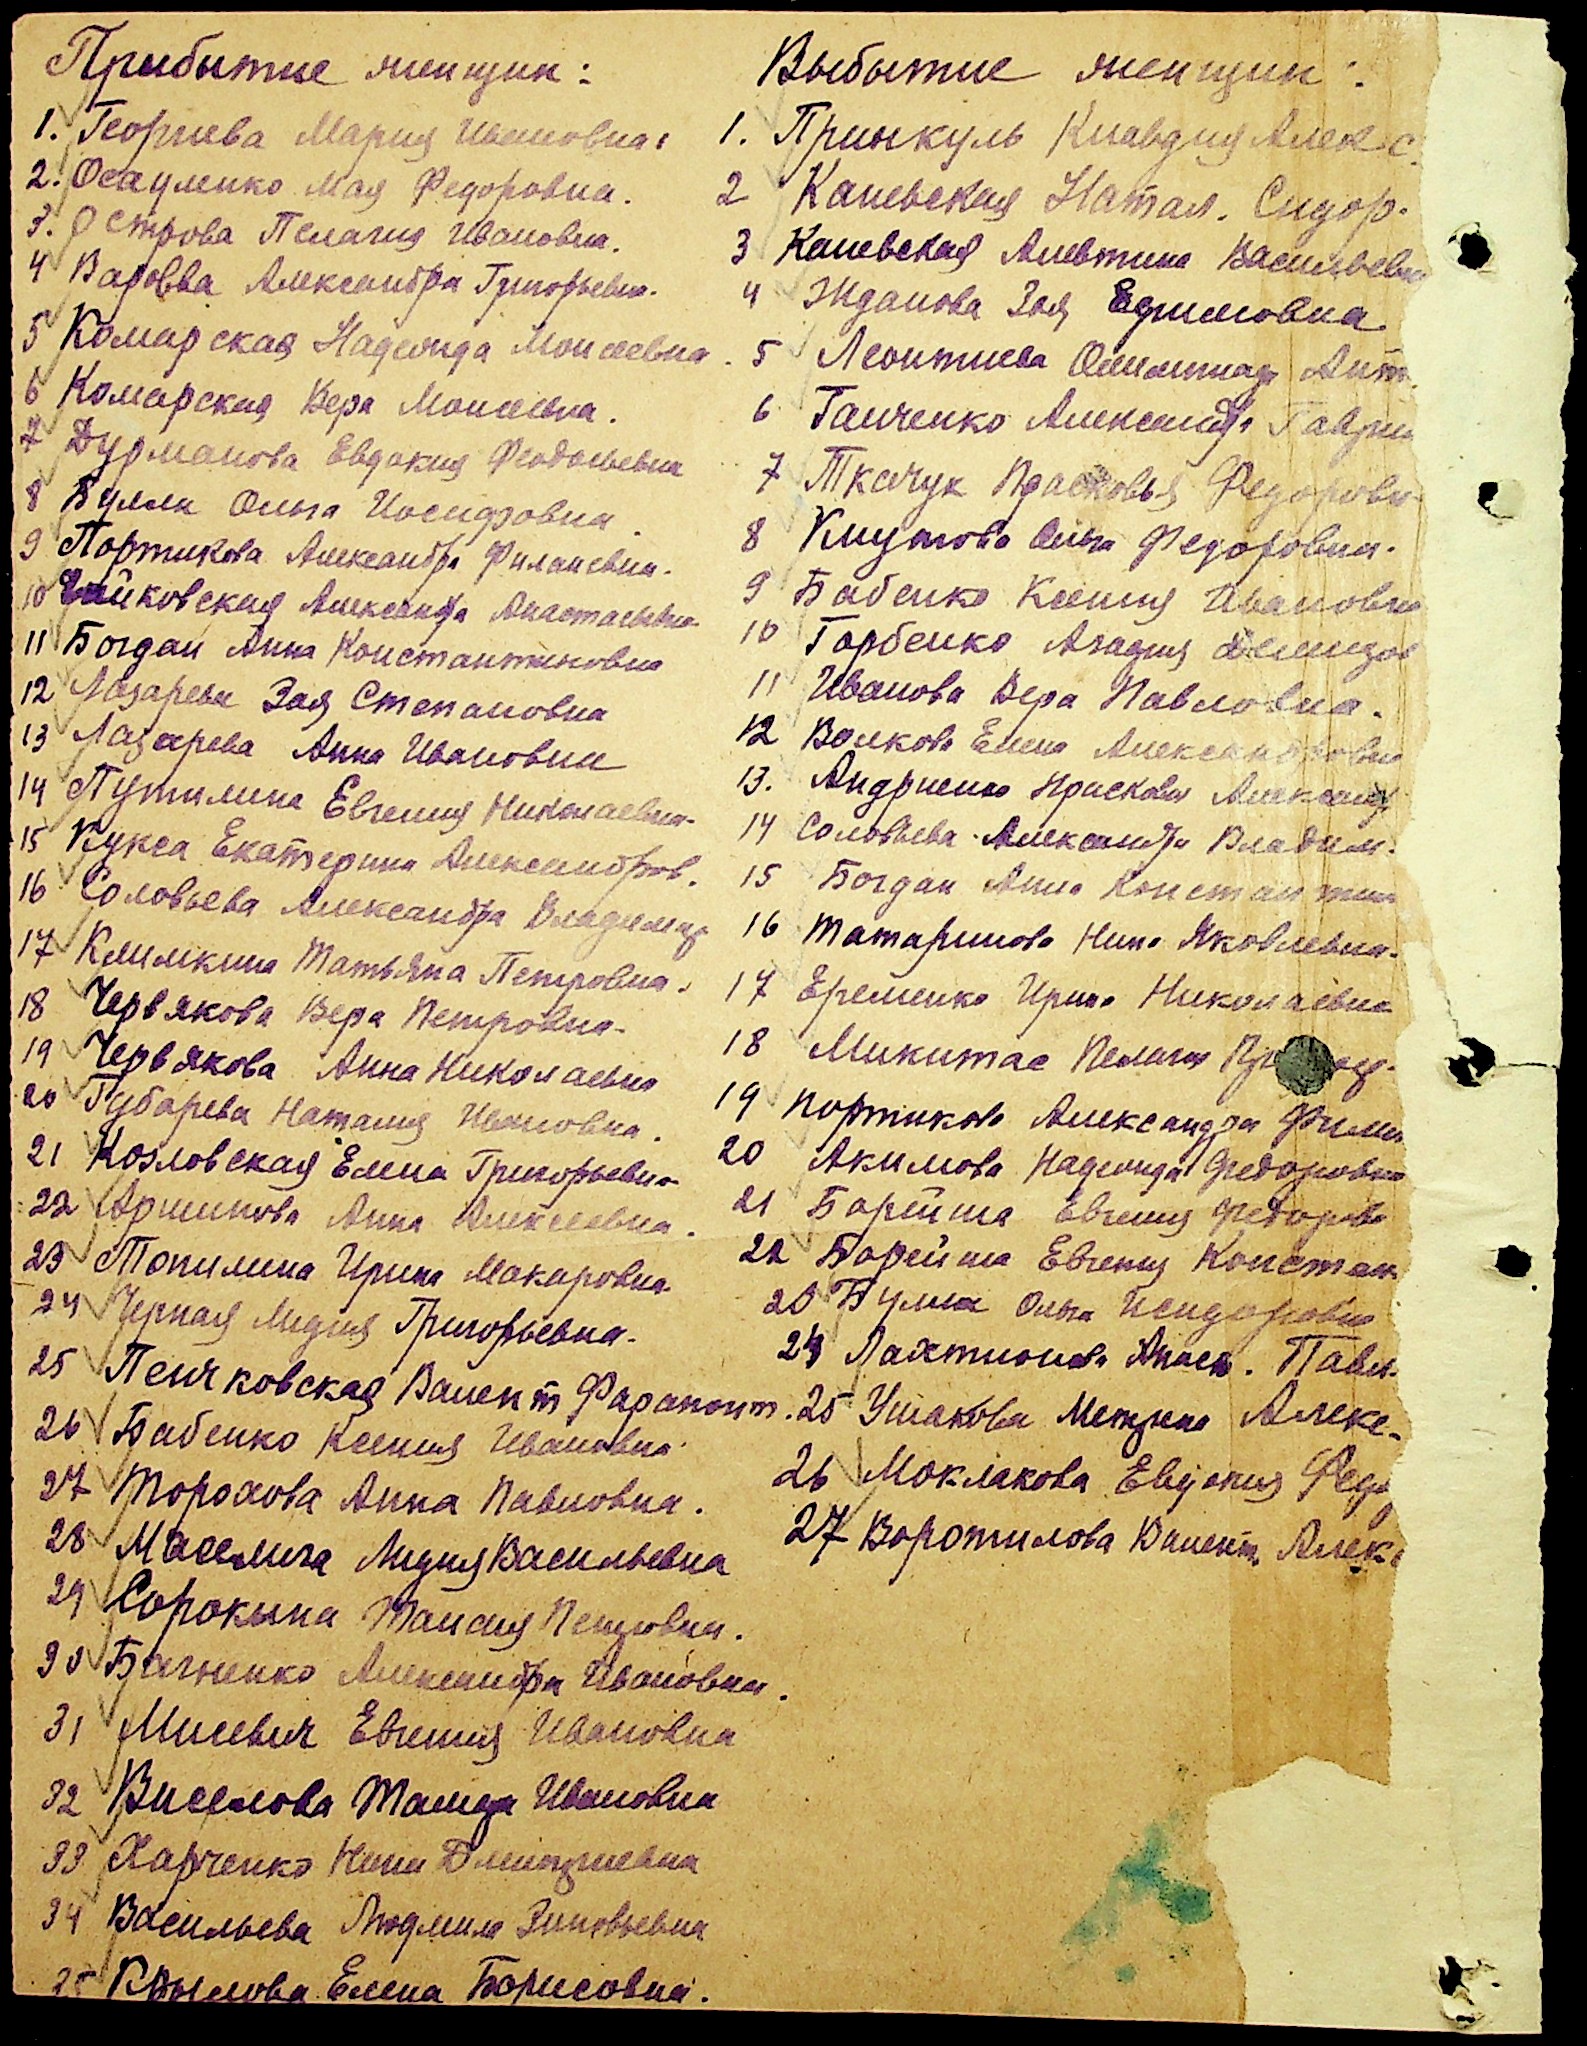 Прибытие женщин:
1. Георгиева Мария Ивановна.
2. Осауленко Мая Федоровна.
3. Острова Пелагия Ивановна.
4 Варовва Александра Григорьевна.
5 Комарская Надежда Моисеевна.
6 Комарская Вера Моисеевна.
7 Дурманова Евдокия Феодосьевна
8 Булла Ольга Иосифовна.
9 Портикова Александра
10 Чайковская Александра Анастасьевна
11 Богдан Анна Константиновна
12 Лазарева Зоя Степановна
13 Лазарева Анна Ивановна
14 Путилина Евгения Николаевна.
15 Кукса Екатерина Александров.
16 Соловьева Александра Владимир
17 Климкина Татьяна Петровна.
18 Червякова Вера Петровна.
19 Червякова Анна Николаевна
20 Губарева Наталия Ивановна.
21 Козловская Елена Григорьевна
22 Аршинова Анна Алексеевна.
23 Топилина Ирина Макаровна.
24 Черная Лидия Григорьевна.
25 Пенчковская Валент Фарапонт.
26 Бабенко Ксения Ивановна
27 Торохова Анна Павловна.
28 Лидия Васильевна
29 Сорокина Таисия Петровна.
30 Александра Ивановна.
31 Мисевич Евгения Ивановна
32 Виселова Тамара Ивановна
33 Харченко Нина Дмитриевна
34 Васильева Людмила Зиновьевна
35 Крылова Елена Борисовна.
Выбытие женщин:
1. Принкуль Клавдия Алекс.
2 Каневская Натал. Сидор.
3 Каневская Алевтина Васильевна
4 Жданова Зоя Ефимовна.
5 Леонтиева Олимпиада Ант.
6 Ганченко Александра Гаврил
7 Ткачук Прасковья Федоровн
8 Ольга Федоровна.
9 Бабенко Ксения Ивановна
10 Горбенко Агафия Демидов
11 Иванова Вера Павловна.
12 Волкова Елена Александровна
13. Андриенко Прасковья Александ
14 Соловьева Александра Владим.
15 Богдан Анна Константин
16 Татаринова Нина Яковлевна.
17 Еременко Ирина Николаевна
18 Микитас Пелагия
19 Портикова Александра Филип
20 Акимова Надежда Федоровна
21 Борейша Евгения Федоров
22 Борейша Евгения Констан
23 Булла Ольга Исидоровна
24 Лахтионова Анаст. Павл.
25 Ушакова Матрена Алекс.
26 Моклакова Евдокия Федо
27 Воротилова Валент. Алекс